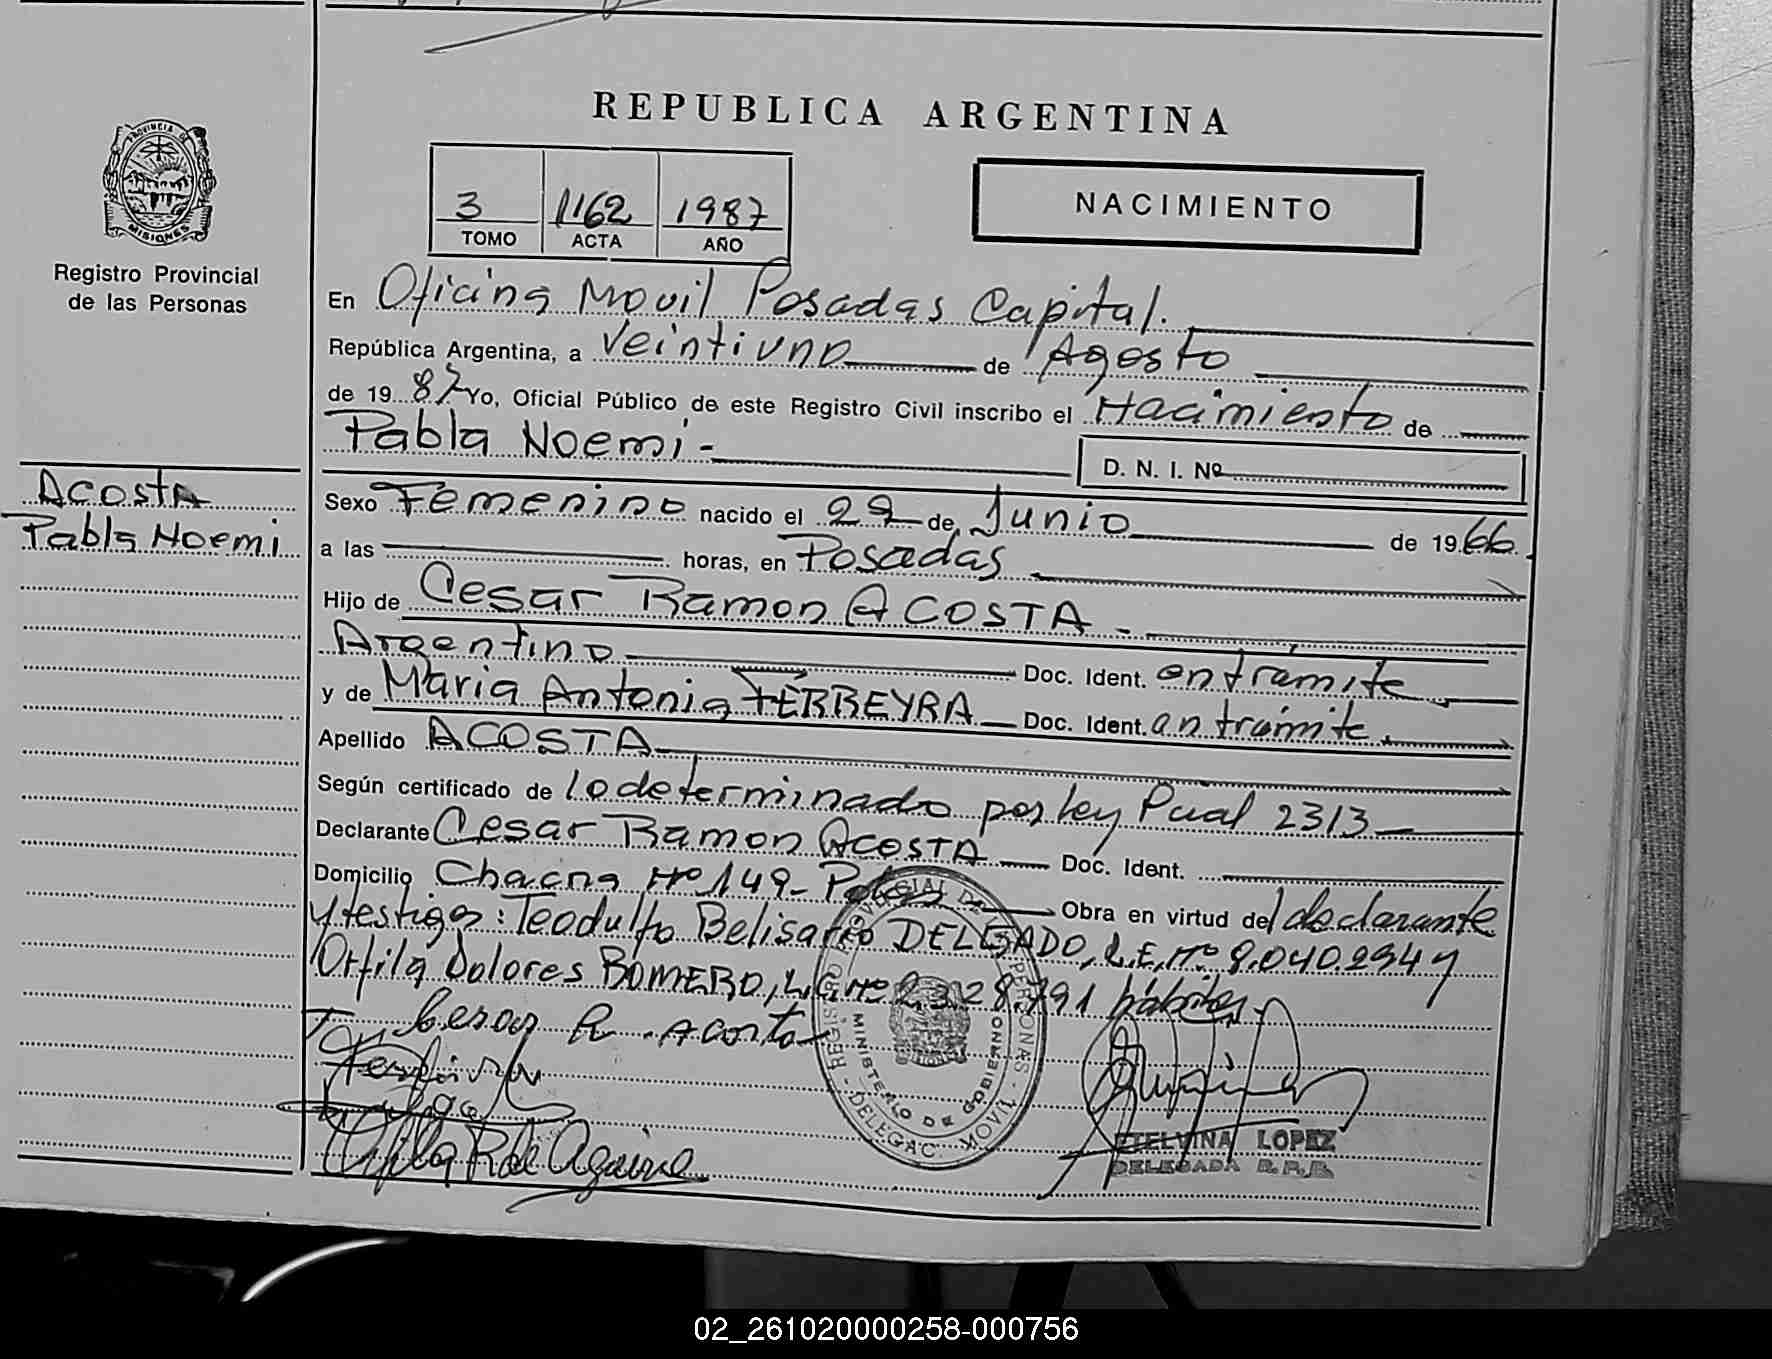 REPUBLICA ARGENTINA
PROVINCIA DE
MISIONES
Registro Provincial
de las Personas
3 1162 1987
TOMO ACTA AÑO
NACIMIENTO
En Oficina Movil Posadas Capital.
República Argentina, a veintiuno de Agosto
de 1987 Yo, Oficial Público de este Registro Civil inscribo el Nacimiento de
Pabla Noemi -
D. N. I. Nº
Acosta
Pabla Noemi
Sexo Femenino nacido el 22 de Junio de 1966.
a las horas, en Posadas
Hijo de Cesar Ramon ACOSTA -
Argentino Doc. Ident. en tramite
y de Maria Antonia FERREYRA Doc. Ident. en tramite.
Apellido ACOSTA
Según certificado de lo determinado por ley Pcial 2313
Declarante Cesar Ramon ACOSTA Doc. Ident.
Domicilio Chacra Nº 149- Obra en virtud del declarante
y testigos: Teodulfo Belisario DELGADO, L.E. Nº 8.040.234 y
Orfila Dolores ROMERO, L.C. Nº 2.328.791 hábiles.
Cesar R. Acosta
Orfila R de Aguirre
REGISTRO PROVINCIAL DE LAS PERSONAS - DELEGAC. MOVIL -
MINISTERIO DE GOBIERNO
ETELVINA LOPEZ
DELEGADA R.P.P.
02_261020000258-000756